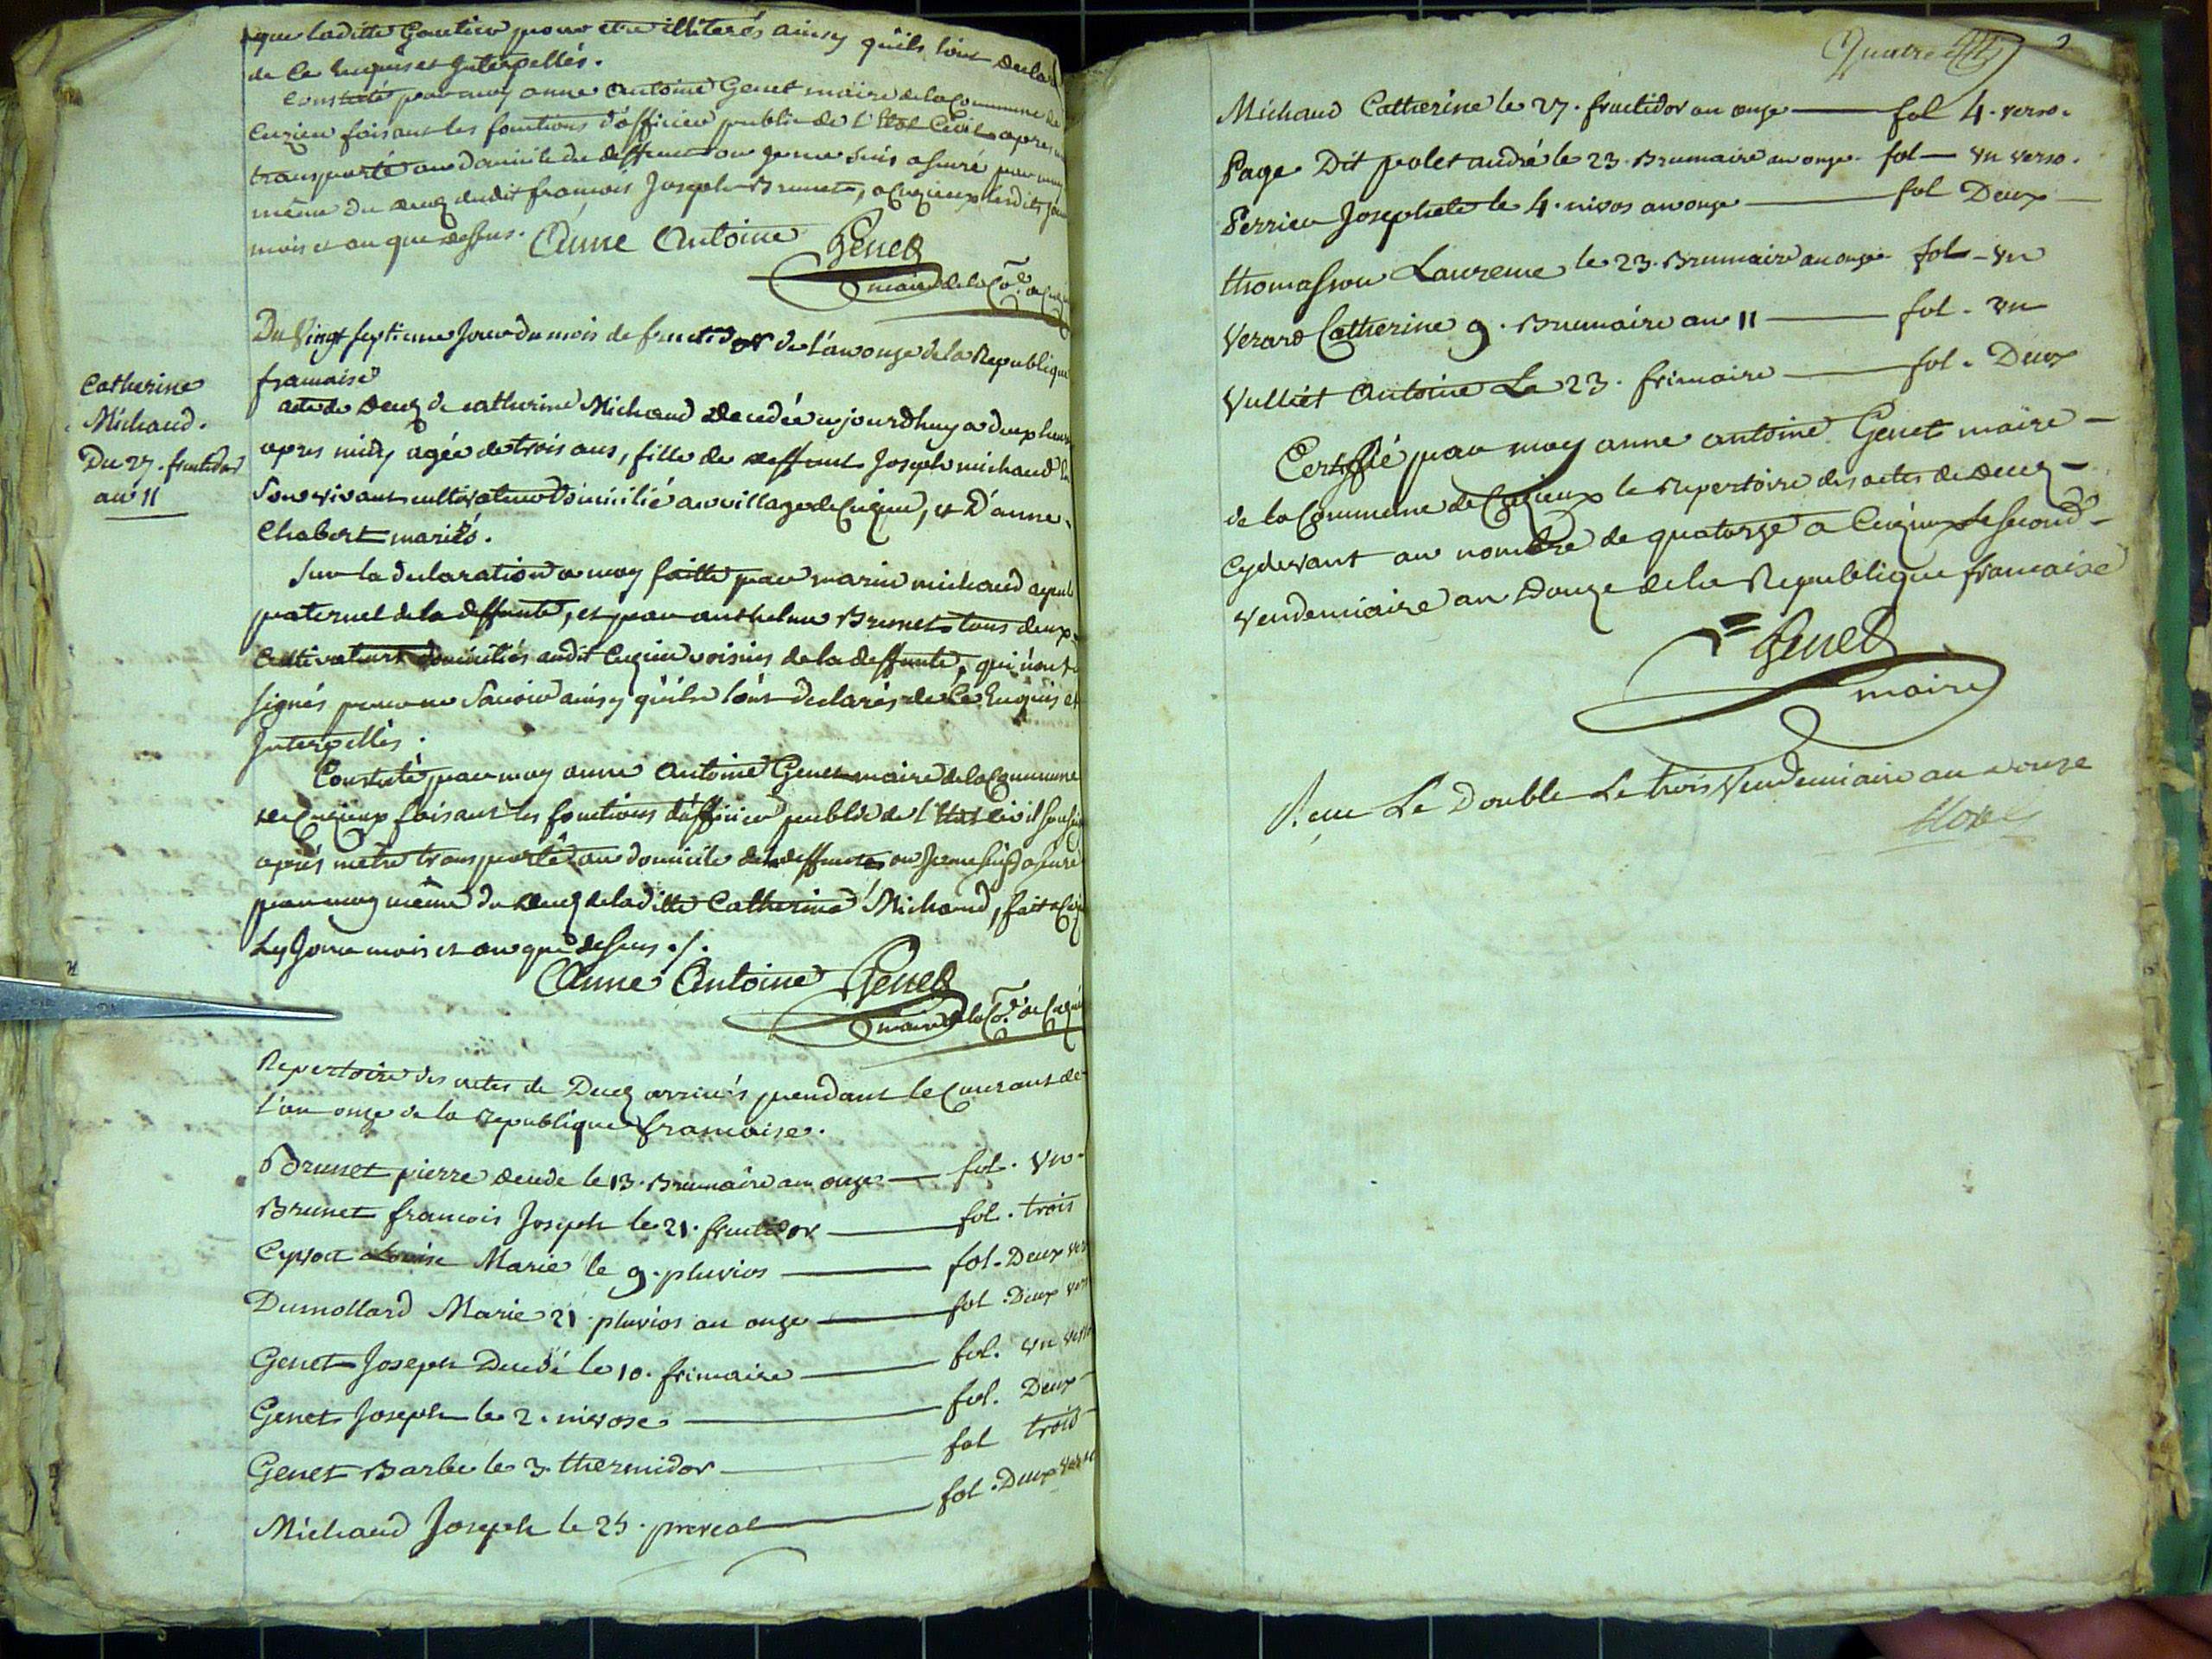 que laditte Gautier pour etre illiterés ainsy qu'ils l'ont declaré
de ce Enquis et Interpellés.
Constaté par moy anne Antoine Genet maire de la Commune de
Cuzieu faisant les fonctions d'officier public de l'Etat Civil apres
transporté au domicile du deffunt ou je me suis assuré par moy
même du decez dudit francois Joseph Brunet, a Cuzieux lesdits jour
mois et an que dessus. Anne Antoine Genet
maire de la Co.ne de
Catherine
Michaud.
Du 27. fructidor
an 11
Du Vingt septieme Jour du mois de fructidor de l'an onze de la Republique
francaise
acte de decez de catherine Michaud decedée aujourdhuy a deux heures
apres midy agée de trois ans, fille de deffunt Joseph michaud
son vivant cultivateur domicilié au village de Cuzieu, et D'anne
Chabert mariés.
Sur la declaration a moy faitte par marin michaud ayeul
paternel de la deffunte, et par anthelme Brunet tous deux
Cultivateurs domiciliés audit Cuzieu voisins de la deffunte, qui n'ont
signés pour ne savoir ainsy qu'ils l'ont declarés de ce Enquis et
Interpellés.
Constaté par moy anne Antoine Genet maire de la Commune
de Cuzieux faisant les fonctions d'officier public de l'Etat civil
aprés m'etre transporté au domicile de la deffunte ou je me suis assuré
par moy même du decez de laditte Catherine Michaud, fait a
Les Jour mois et an que dessus ./.
Anne Antoine Genet
maire de la Co.ne de
Repertoire des actes de Decez arrivés pendant le Courant de
l'an onze de la Republique francaise.
Brunet pierre decede le 13. Brumaire an onze — fol. Un.
Brunet francois Joseph le 21. fructidor — fol. trois
Marie le 9. pluvios — fol. Deux ver
Dumollard Marie 21 pluvios an onze — fol. Deux ver
Genet Joseph Decedé le 10. frimaire — fol. un verso
Genet Joseph le 2. nivose — fol. Deux
Genet Barbe le 3. thermidor — fol trois
Michaud Joseph le 25. prereal — fol. Deux verso
Quatre
Michaud Catherine le 27. fructidor an onze — fol 4. verso.
Page Dit polet andré le 23. Brumaire an onze. fol — un verso.
Perrieu Josephete le 4. nivos an onze — fol Deux —
thomasson Laurence le 23. Brumaire an onze fol — un
Verard Catherine 9. Brumaire an 11 — fol. un
Vulliet Antoine Le 23. frimaire — fol. Deux
Certifié par moy anne antoine Genet maire —
de la Commune de Cuzieux le Repertoire des actes de Decez —
Cydevant au nombre de quatorze a Cuzieux Le second —
vendemiaire an Douze de la Republique francaise
Genet
maire
Reçu Le Double Le trois Vendemiaire an douze